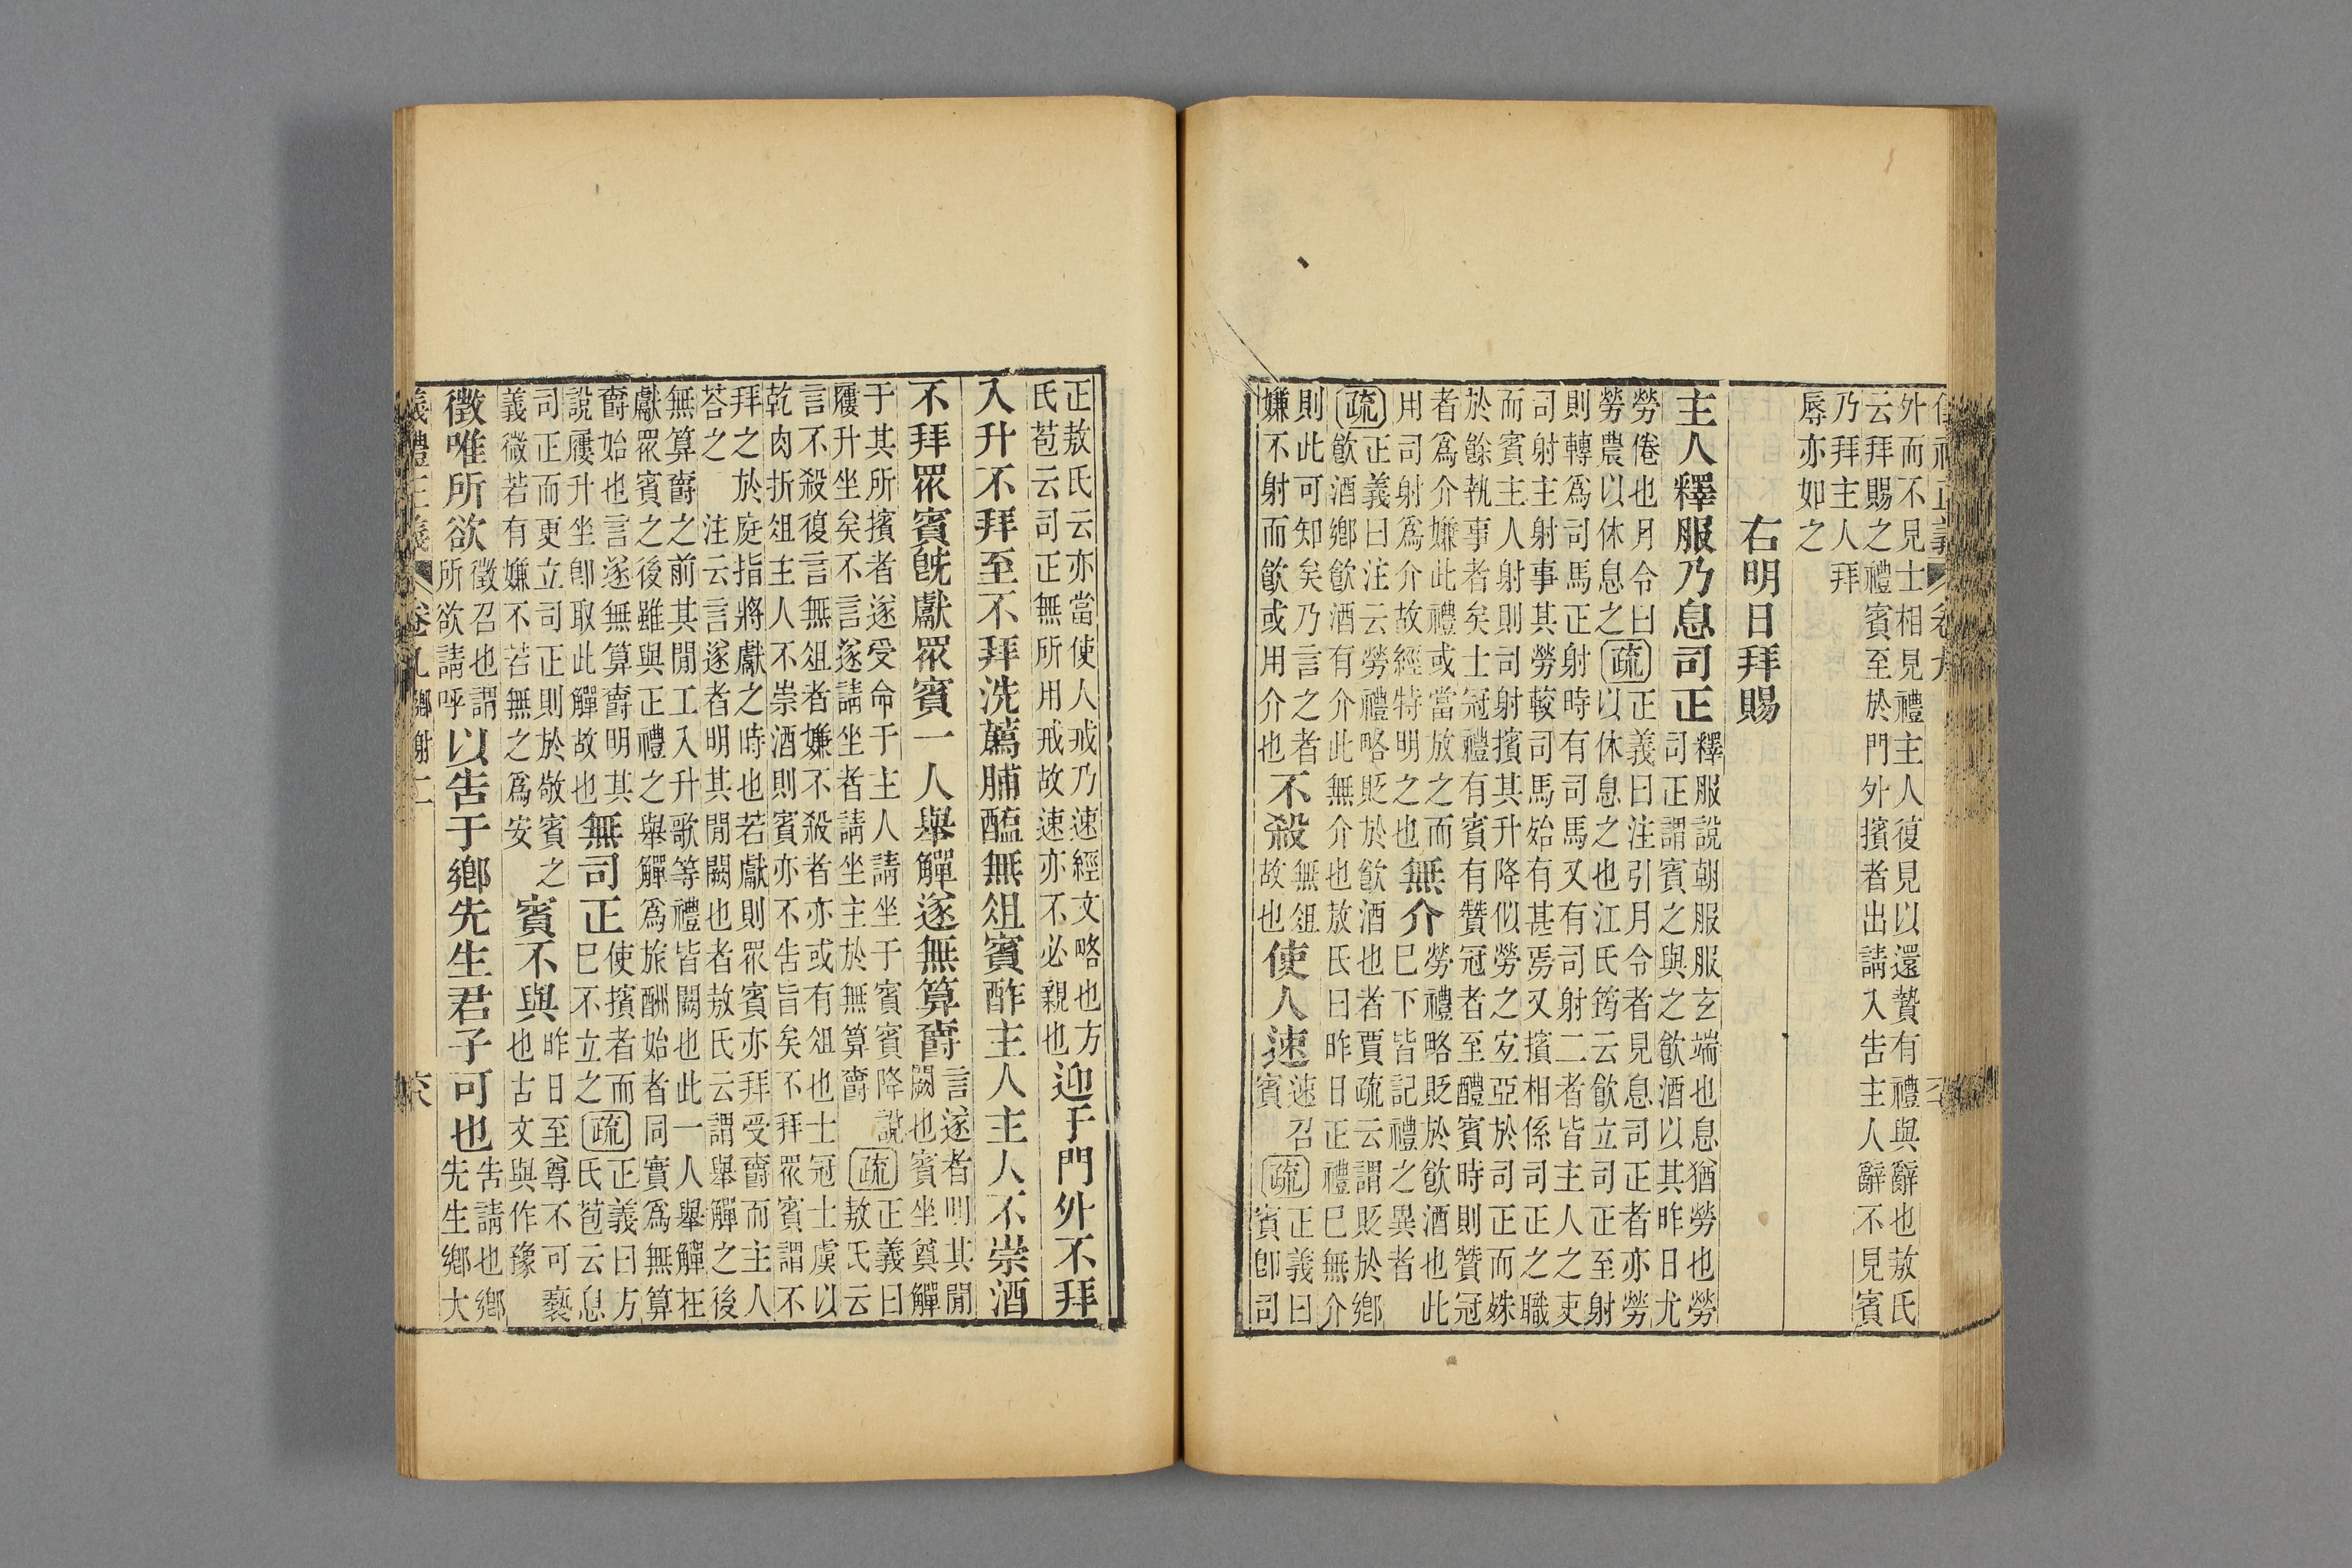 外而不見士相見禮主人復見以還贄有禮與辭也敖氏
云拜賜之禮賓至於門外擯者出請入告主人辭不見賓
乃拜主人拜
辱亦如之
右明日拜賜
主人釋服乃息司正
釋服說朝服服玄端也息猶勞也勞
司正謂賓之與之飲酒以其昨日尤
勞倦也月令曰
勞農以休息之
疏
正義曰注引月令者見息司正者亦勞
以休息之也江氏筠云飲立司正至射
則轉爲司馬正射時有司馬又有司射二者皆主人之吏
司射主射事其勞較司馬始有甚焉又擯相係司正之職
而賓主人射則司射擯其升降似勞之宜亞於司正而姝
於餘執事者矣士冠禮有賓有贊冠者至醴賓時則贊冠
者爲介嫌此禮或當放之而
用司射爲介故經特明之也
無介
勞禮略貶於飲酒也此
巳下皆記禮之異者
疏
正義曰注云勞禮略貶於飲酒也者賈疏云謂貶於鄉
飲酒鄉飲酒有介此無介也敖氏曰昨日正禮巳無介
則此可知矣乃言之者
嫌不射而飲或用介也
不殺
無俎
故也
使人速
速召
賓
疏
正義曰
賓卽司
正敖氏云亦當使人戒乃速經文略也方
氏苞云司正無所用戒故速亦不必親也
迎于門外不拜
入升不拜至不拜洗薦脯醢無俎賓酢主人主人不崇酒
不拜眾賓旣獻眾賓一人舉觶遂無算爵
言遂者明其閒
闕也賓坐奠觶
于其所擯者遂受命于主人請坐于賓賓降說
屨升坐矣不言遂請坐者請坐主於無算爵
疏
正義曰
敖氏云
言不殺復言無俎者嫌不殺者亦或有俎也士冠士虞以
乾肉折俎主人不崇酒則賓亦不告旨矣不拜眾賓謂不
拜之於庭指將獻之時也若獻則眾賓亦拜受爵而主人
荅之 注云言遂者明其閒闕也者敖氏云謂舉觶之後
無算爵之前其閒工入升歌等禮皆闕也此一人舉觶在
獻眾賓之後雖與正禮之舉觶爲旅酬始者同實爲無算
爵始也言遂無算爵明其
說屨升坐卽取此觶故也
無司正
使擯者而
巳不立之
疏
正義曰方
氏苞云息
司正而更立司正則於敬賓之
義微若有嫌不若無之爲安
賓不與
昨日至尊不可褻
也古文與作豫
徵唯所欲
徵召也謂
所欲請呼
以告于鄉先生君子可也
告請也鄉
先生鄉大